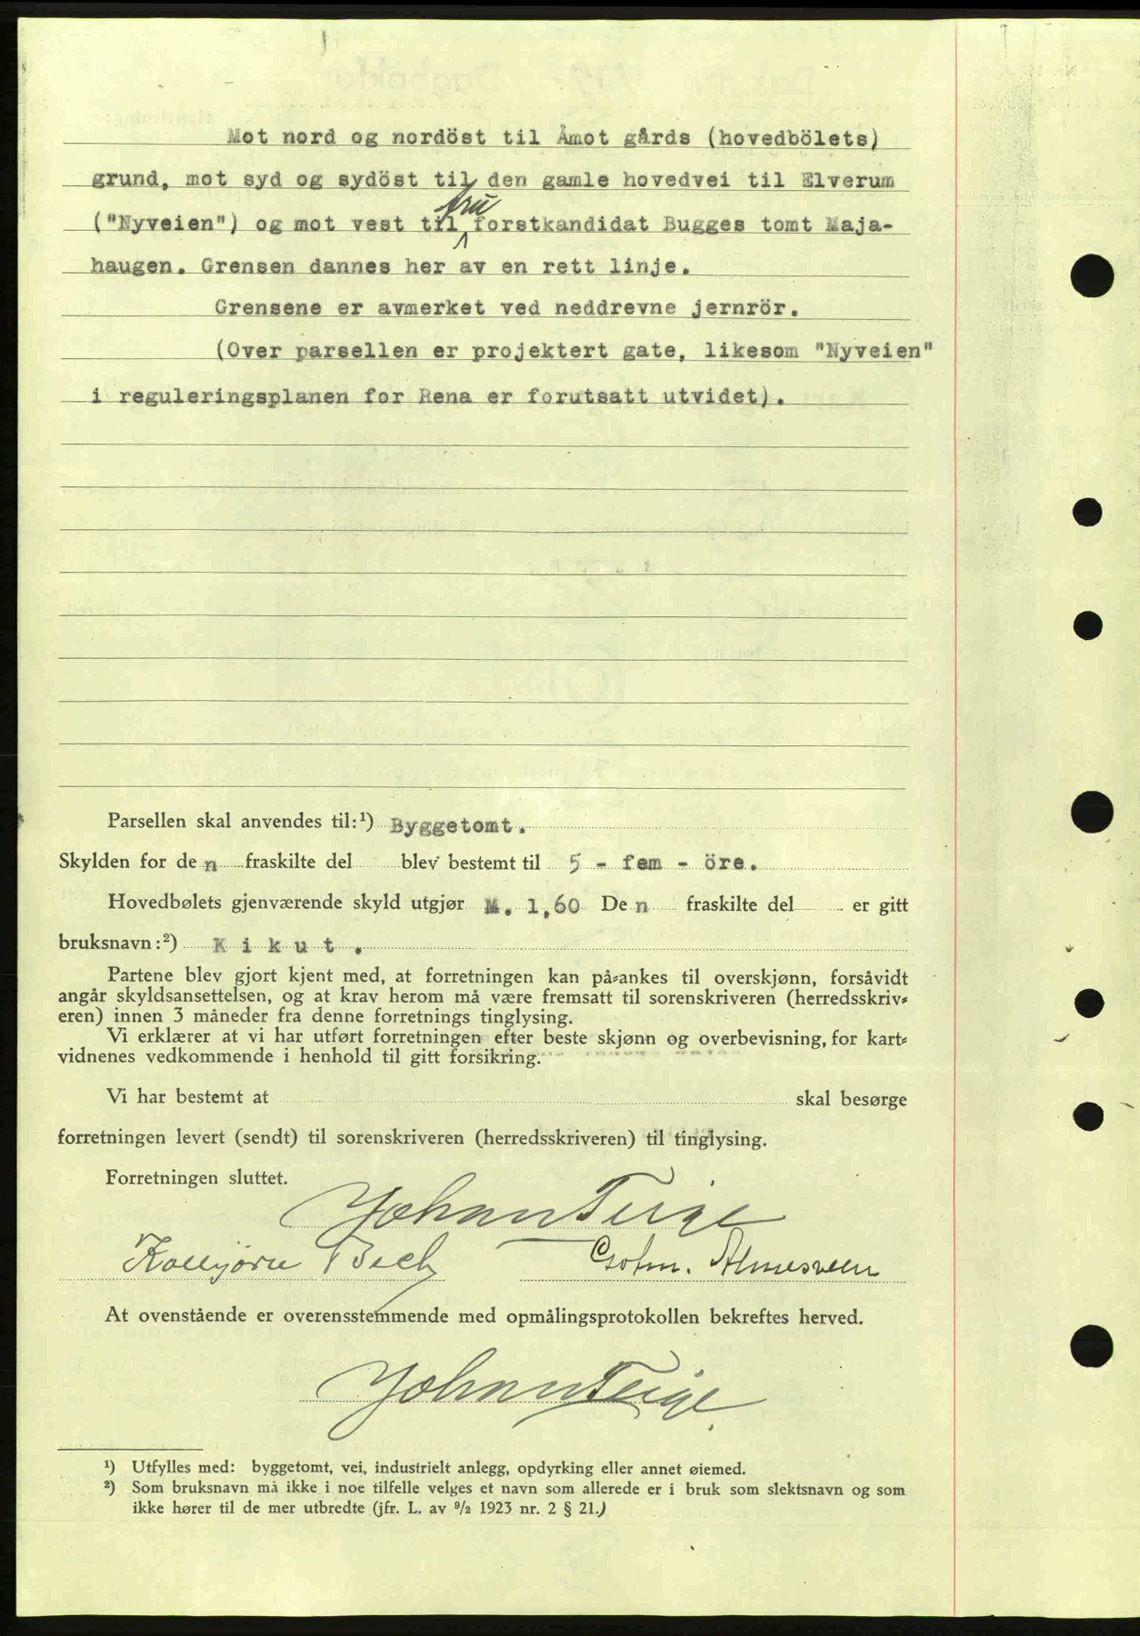 Mot nord og nordöst til Åmot gårds (hovedbölets)
grund, mot syd og sydöst til den gamle hovedvei til Elverum
fru
("Nyveien") og mot vest til forstkandidat Bugges tomt Maja-
haugen. Grensen dannes her av en rett linje.
Grensene er avmerket ved neddrevne jernrör.
(Over parsellen er projektert gate, likesom "Nyveien"
i reguleringsplanen for Rena er forutsatt utvidet).
Parsellen skal anvendes til:¹) Byggetomt.
Skylden for den fraskilte del blev bestemt til 5 - fem - öre.
Hovedbølets gjenværende skyld utgjør M. 1,60 Den fraskilte del er gitt
bruksnavn:²) K i k u t .
Partene blev gjort kjent med, at forretningen kan på-ankes til overskjønn, forsåvidt
angår skyldsansettelsen, og at krav herom må være fremsatt til sorenskriveren (herredsskriv-
eren) innen 3 måneder fra denne forretnings tinglysing.
Vi erklærer at vi har utført forretningen efter beste skjønn og overbevisning, for kart-
vidnenes vedkommende i henhold til gitt forsikring.
Vi har bestemt at skal besørge
forretningen levert (sendt) til sorenskriveren (herredsskriveren) til tinglysing.
Forretningen sluttet.
Johan Teige
Kolbjørn Bech Almesveen
At ovenstående er overensstemmende med opmålingsprotokollen bekreftes herved.
Johan Teige
¹) Utfylles med: byggetomt, vei, industrielt anlegg, opdyrking eller annet øiemed.
²) Som bruksnavn må ikke i noe tilfelle velges et navn som allerede er i bruk som slektsnavn og som
ikke hører til de mer utbredte (jfr. L. av 9/2 1923 nr. 2 § 21.)